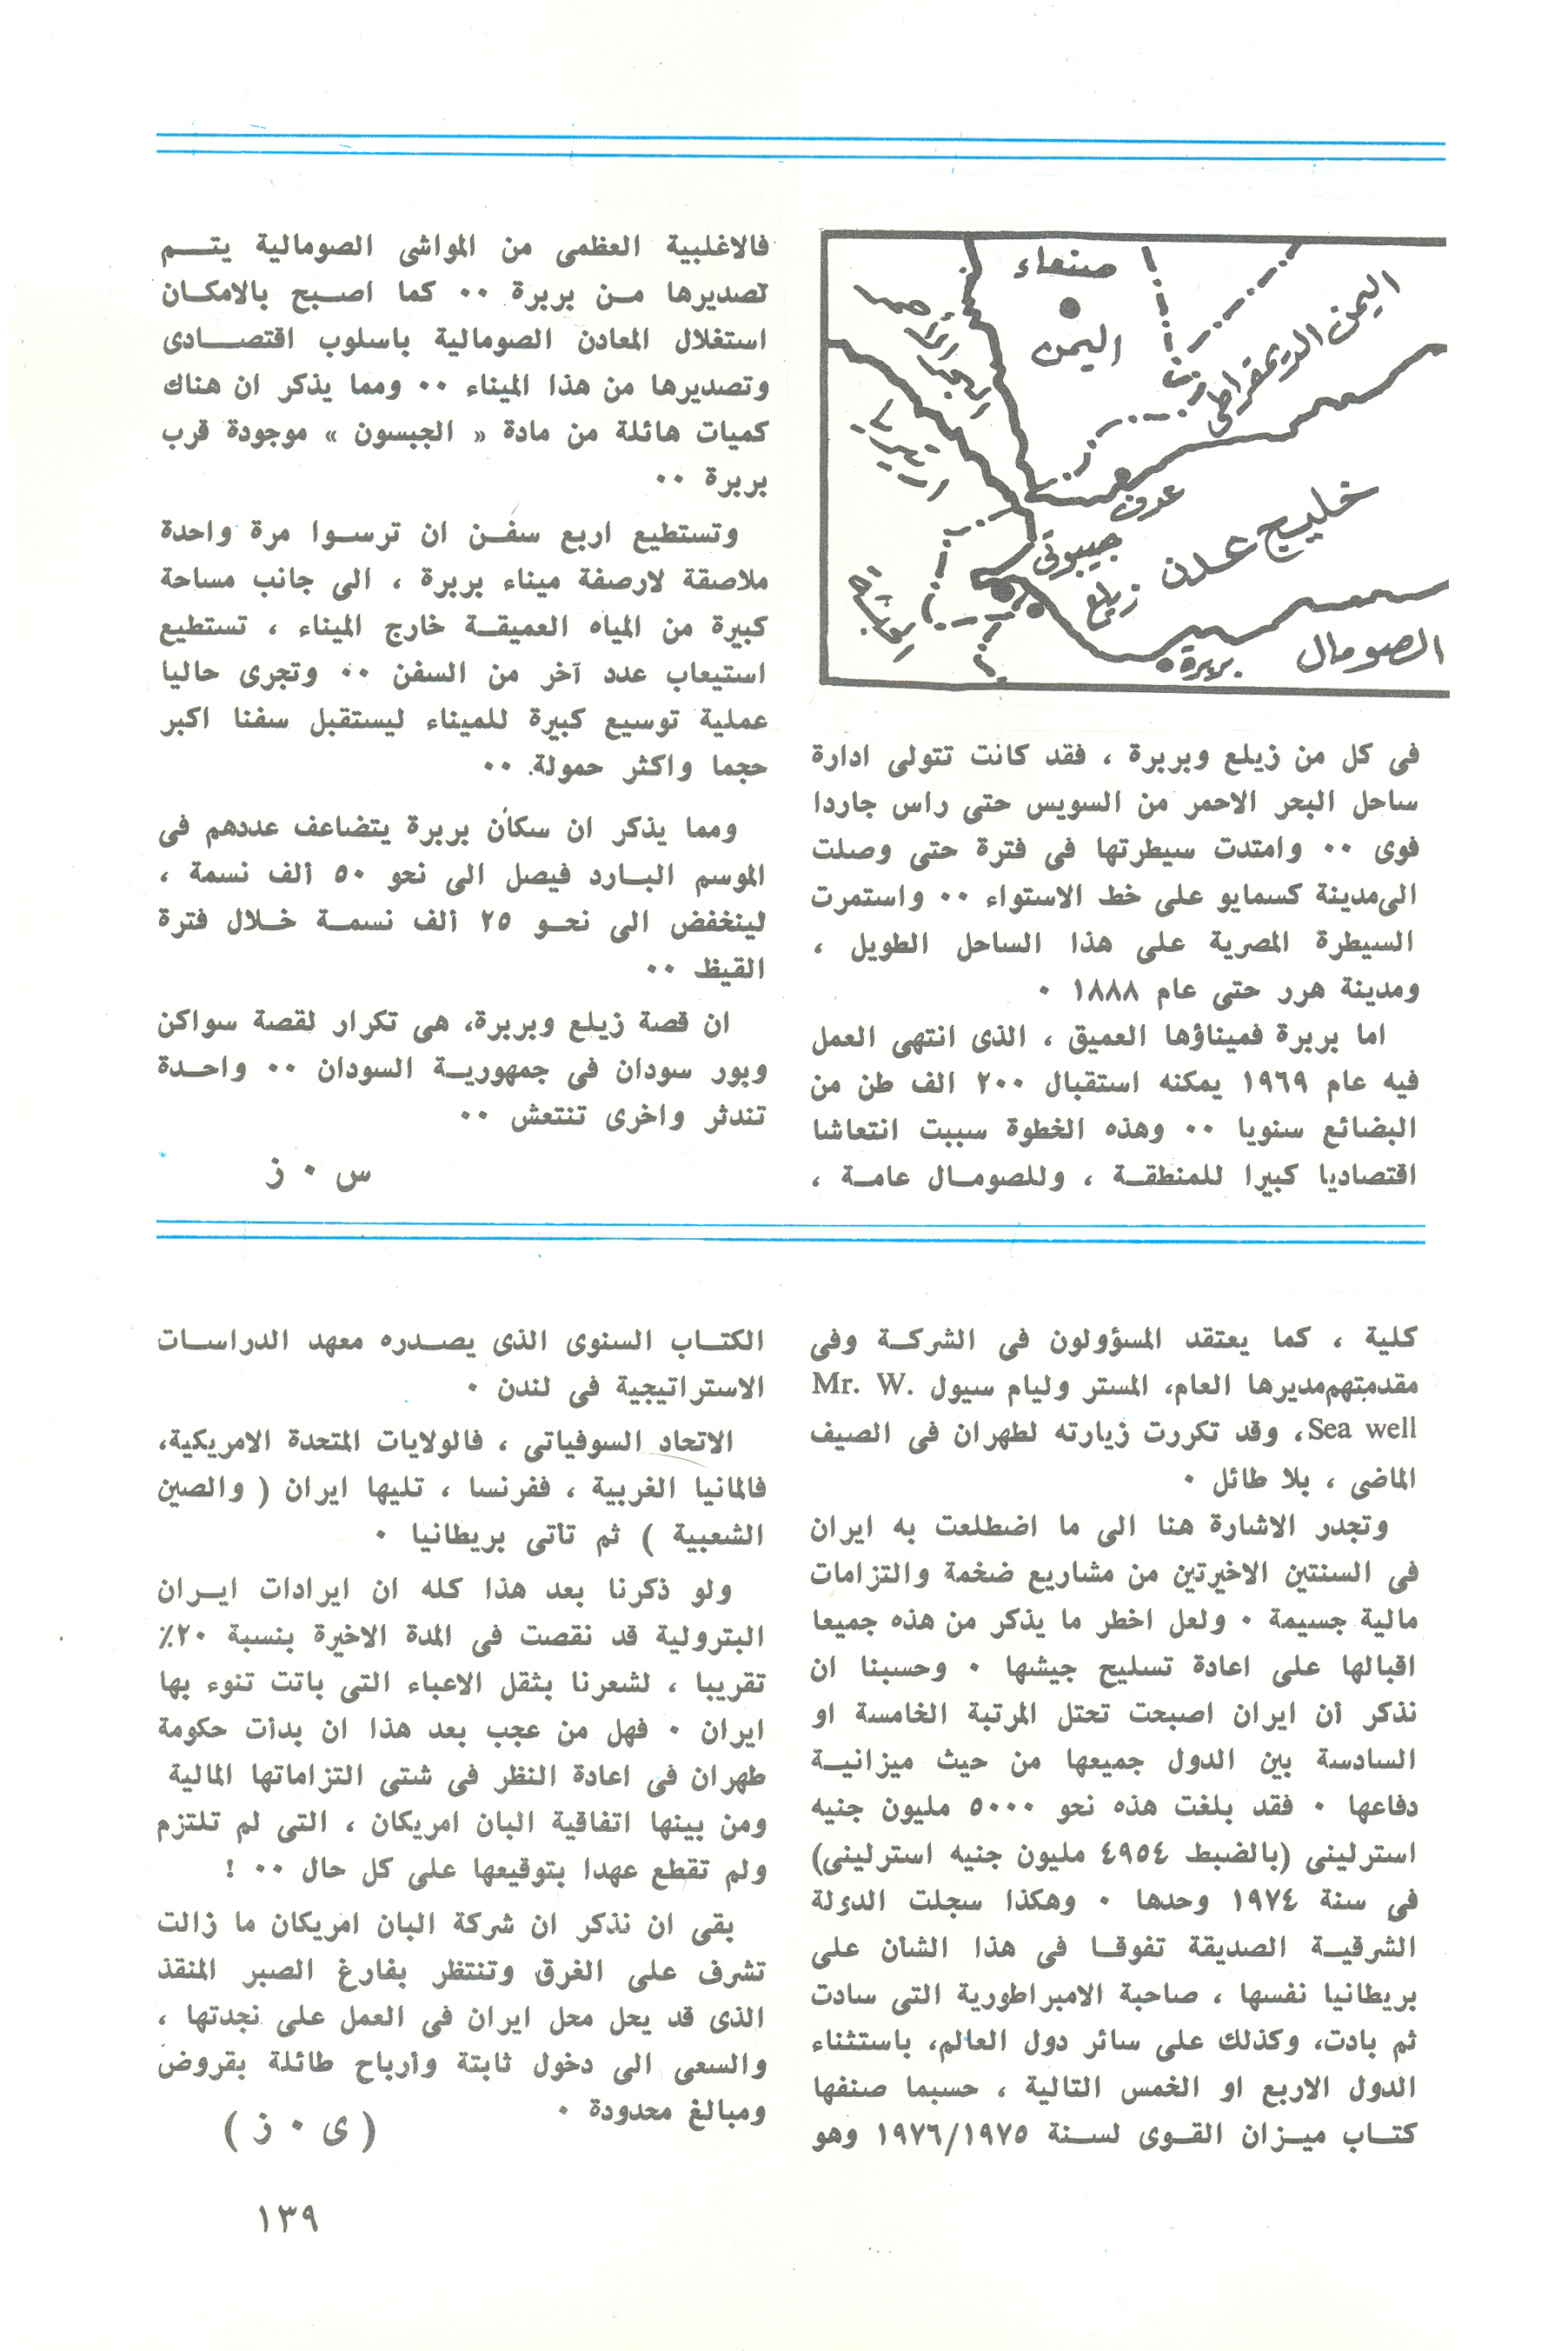 صنعاء
اليمن
اليمن الديمقراطى
البحر الاحمر
عدن
خليج عدن
جيبوتى
زيلع
بربرة
الصومال
فى كل من زيلع وبربرة ، فقد كانت تتولى ادارة
ساحل البحر الاحمر من السويس حتى راس جاردا
فوى ٠٠ وامتدت سيطرتها فى فترة حتى وصلت
الى مدينة كسمايو على خط الاستواء ٠٠ واستمرت
السيطرة المصرية على هذا الساحل الطويل ،
ومدينة هرر حتى عام ١٨٨٨ ٠
اما بربرة فميناؤها العميق ، الذى انتهى العمل
فيه عام ١٩٦٩ يمكنه استقبال ٢٠٠ الف طن من
البضائع سنويا ٠٠ وهذه الخطوة سببت انتعاشا
اقتصاديا كبيرا للمنطقة ، وللصومال عامة ،
فالاغلبية العظمى من المواشى الصومالية يتم
تصديرها من بربرة ٠٠ كما اصبح بالامكان
استغلال المعادن الصومالية باسلوب اقتصادى
وتصديرها من هذا الميناء ٠٠ ومما يذكر ان هناك
كميات هائلة من مادة « الجبسون » موجودة قرب
بربرة ٠٠
وتستطيع اربع سفن ان ترسوا مرة واحدة
ملاصقة لارصفة ميناء بربرة ، الى جانب مساحة
كبيرة من المياه العميقة خارج الميناء ، تستطيع
استيعاب عدد آخر من السفن ٠٠ وتجرى حاليا
عملية توسيع كبيرة للميناء ليستقبل سفنا اكبر
حجما واكثر حمولة ٠٠
ومما يذكر ان سكان بربرة يتضاعف عددهم فى
الموسم البارد فيصل الى نحو ٥٠ ألف نسمة ،
لينخفض الى نحو ٢٥ ألف نسمة خلال فترة
القيظ ٠٠
ان قصة زيلع وبربرة، هى تكرار لقصة سواكن
وبور سودان فى جمهورية السودان ٠٠ واحدة
تندثر واخرى تنتعش ٠٠
س ٠ ز
كلية ، كما يعتقد المسؤولون فى الشركة وفى
مقدمتهم مديرها العام، المستر وليام سيول Mr. W.
Sea well، وقد تكررت زيارته لطهران فى الصيف
الماضى ، بلا طائل ٠
وتجدر الاشارة هنا الى ما اضطلعت به ايران
فى السنتين الاخيرتين من مشاريع ضخمة والتزامات
مالية جسيمة ٠ ولعل اخطر ما يذكر من هذه جميعا
اقبالها على اعادة تسليح جيشها ٠ وحسبنا ان
نذكر أن ايران اصبحت تحتل المرتبة الخامسة او
السادسة بين الدول جميعها من حيث ميزانية
دفاعها ٠ فقد بلغت هذه نحو ٥٠٠٠ مليون جنيه
استرلينى (بالضبط ٤٩٥٤ مليون جنيه استرلينى)
فى سنة ١٩٧٤ وحدها ٠ وهكذا سجلت الدولة
الشرقية الصديقة تفوقا فى هذا الشأن على
بريطانيا نفسها ، صاحبة الامبراطورية التى سادت
ثم بادت، وكذلك على سائر دول العالم، باستثناء
الدول الاربع او الخمس التالية ، حسبما صنفها
كتاب ميزان القوى لسنة ١٩٧٦/١٩٧٥ وهو
الكتاب السنوى الذى يصدره معهد الدراسات
الاستراتيجية فى لندن ٠
الاتحاد السوفياتى ، فالولايات المتحدة الامريكية،
فالمانيا الغربية ، ففرنسا ، تليها ايران ( والصين
الشعبية ) ثم تأتى بريطانيا ٠
ولو ذكرنا بعد هذا كله ان ايرادات ايران
البترولية قد نقصت فى المدة الاخيرة بنسبة ٢٠٪
تقريبا ، لشعرنا بثقل الاعباء التى باتت تنوء بها
ايران ٠ فهل من عجب بعد هذا ان بدأت حكومة
طهران فى اعادة النظر فى شتى التزاماتها المالية
ومن بينها اتفاقية البان امريكان ، التى لم تلتزم
ولم تقطع عهدا بتوقيعها على كل حال ٠٠ !
بقى ان نذكر ان شركة البان امريكان ما زالت
تشرف على الغرق وتنتظر بفارغ الصبر المنقذ
الذى قد يحل محل ايران فى العمل على نجدتها ،
والسعى الى دخول ثابتة وأرباح طائلة بقروض
ومبالغ محدودة ٠
( ى ٠ ز )
١٣٩